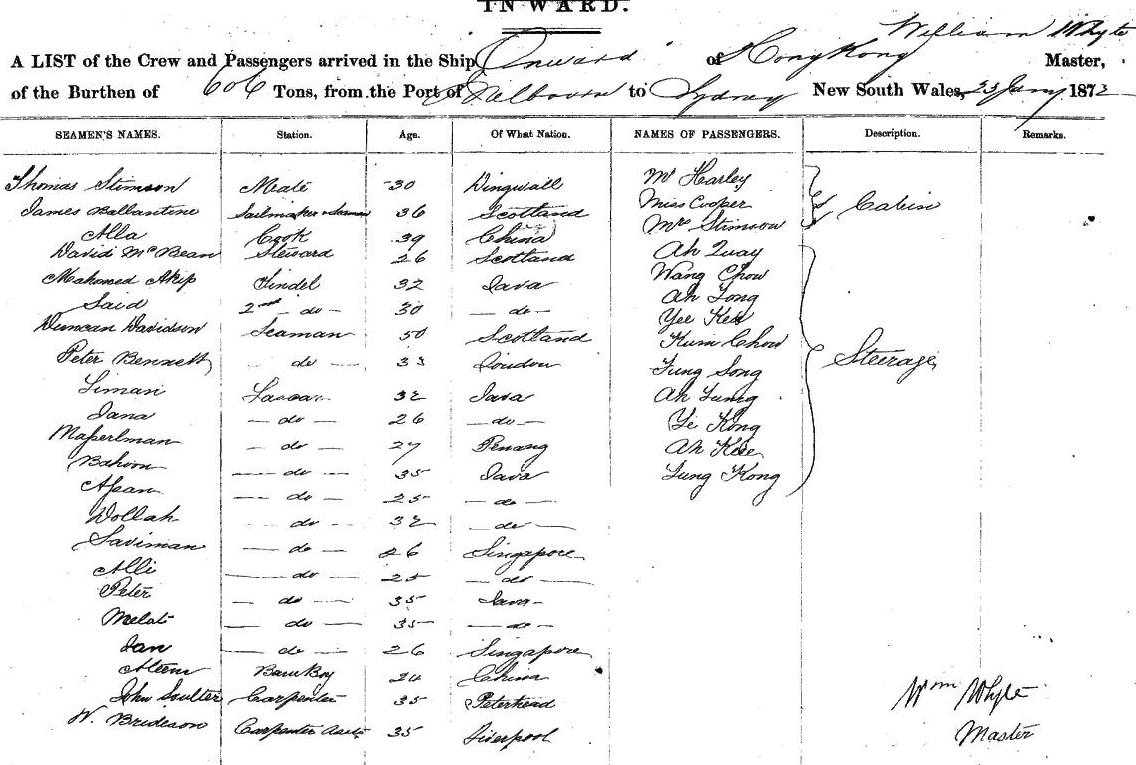 INWARD.
William Whyte
A LIST of the Crew and Passengers arrived in the Ship Onward of Hong Kong Master,
of the Burthen of 606 Tons, from the Port of Melbourne to Sydney New South Wales, 23 Jany 1872
SEAMEN'S NAMES. Station. Age. Of What Nation. NAMES OF PASSENGERS. Description. Remarks.
Thomas Stimson Mate 30 Dingwall Mr Harley
James Ballantine Sailmaker & Seaman 36 Scotland Miss Cooper Cabin
Alla Cook 39 China Mrs Stimson
David McBean Steward 26 Scotland Ah Quay
Mahomed Akip Tindel 32 Java Wang Chow
Said 2nd do 30 do Ah Tong
Duncan Davidson Seaman 50 Scotland Yee Kee
Peter Bennett do 33 London Kum Chow Steerage
Liman Lascar 32 Java Fung Song
Jana do 26 do Ah Fung
do 27 Penang Ye Kong
do 35 Java Ah Kee
do 25 do Fung Kong
Dollah do 32 do
Saviman do 26 Singapore
Alli do 25 do
Peter do 35 Java
Melat do 35 do
Jan do 26 Singapore
24 China
John Soulter Carpenter 35 Peterhead
W. Brideson Carpenter 35 Liverpool
Wm Whyte
Master